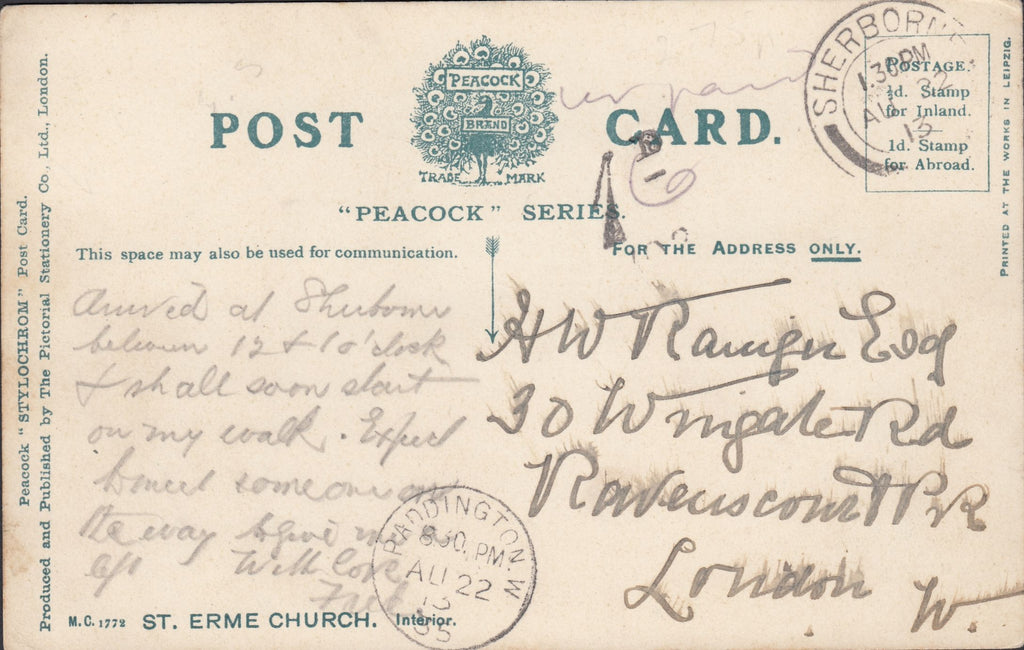 Peacock "STYLOCHROM" Post Card.
Produced and Published by The Pictorial Stationery Co., Ltd., London.
POST CARD.
PEACOCK
BRAND
TRADE MARK
"PEACOCK" SERIES.
SHERBORNE
1.30PM
AU 22
13
POSTAGE.
½d. Stamp
for Inland.
1d. Stamp
for Abroad.
PRINTED AT THE WORKS IN LEIPZIG.
This space may also be used for communication.
FOR THE ADDRESS ONLY.
Arrived at Sherborne
between 12 & 1 o'clock
& shall soon start
on my walk. Expect
to meet someone on
the way to give me
With love
H W Esq
30 Wingate Rd
Ravenscourt Pk
London W.
PADDINGTON W
8.30 PM
AU 22
13
35
M.C. 1772 ST. ERME CHURCH. Interior.